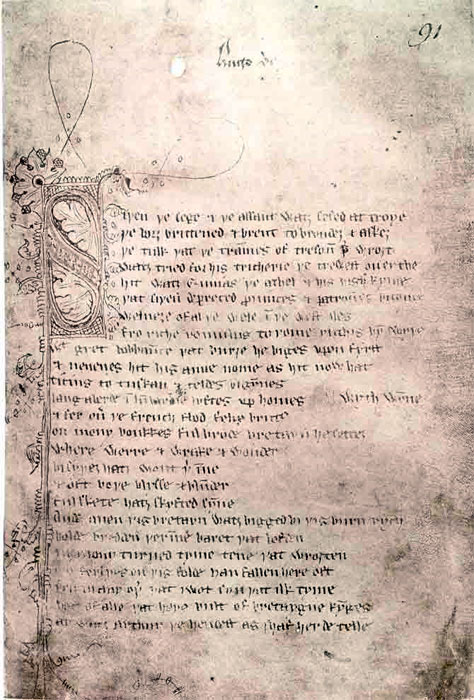 91
Hugo de
Siþen þe sege & þe assaut watz sesed at troye
þe borȝ brittened & brent to brondez & askez
þe tulk þat þe trammes of tresoun þer wroȝt
watz tried for his tricherie þe trewest on erthe
hit watz Ennias þe athel & his highe kynde
þat siþen depreced prouinces & patrounes bicome
welneȝe of al þe wele in þe west iles
fro riche romulus to rome ricchis hym swyþe
gret bobbaunce þat burȝe he biges vpon fyrst
& neuenes hit his aune nome as hit now hat
ticius to tuskan & teldes bigynnes
langaberde in lumbardie lyftes vp homes with wynne
& fer ouer þe french flod felix brutus
on mony bonkkes ful brode bretayn he settez
where werre & wrake & wonder
bi syþez hatz wont þer inne
& oft boþe blysse & blunder
ful skete hatz skyfted synne
Ande quen þis bretayn watz bigged bi þis burn rych
bolde bredden þer inne baret þat lofden
in mony turned tyme tene þat wroȝten
mo ferlyes on þis folde han fallen here oft
þen in any oþer þat I wot syn þat ilk tyme
bot of alle þat here bult of bretaygne kynges
ay watz arthur þe hendest as I haf herde telle